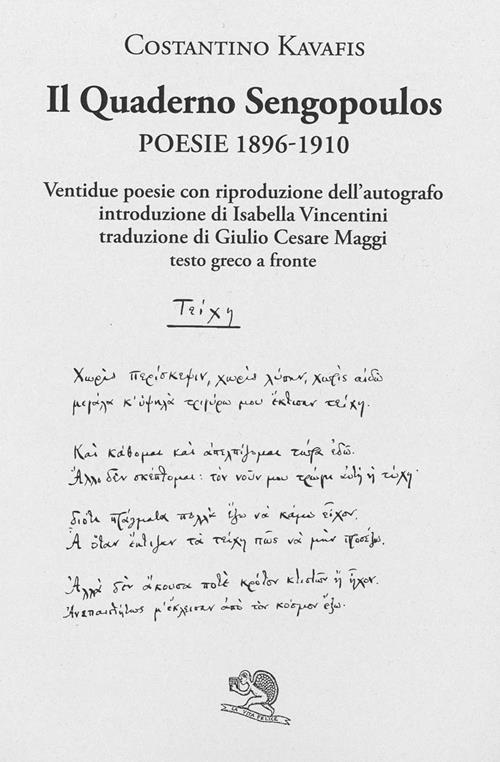 Costantino Kavafis
Il Quaderno Sengopoulos
POESIE 1896-1910
Ventidue poesie con riproduzione dell'autografo
introduzione di Isabella Vincentini
traduzione di Giulio Cesare Maggi
testo greco a fronte
Τείχη
Χωρὶς περίσκεψιν, χωρὶς λύπην, χωρὶς αἰδῶ
μεγάλα κ' ὑψηλὰ τριγύρω μου ἔκτισαν τείχη.
Καὶ κάθομαι καὶ ἀπελπίζομαι τώρα ἐδῶ.
Ἄλλο δὲν σκέπτομαι: τὸν νοῦν μου τρώγει αὐτὴ ἡ τύχη·
διότι πράγματα πολλὰ ἔξω νὰ κάμω εἶχον.
Ἆ ὅταν ἔκτιζαν τὰ τείχη πῶς νὰ μὴν προσέξω.
Ἀλλὰ δὲν ἄκουσα ποτὲ κρότον κτιστῶν ἢ ἦχον.
Ἀνεπαισθήτως μ' ἔκλεισαν ἀπὸ τὸν κόσμον ἔξω.
LA VITA FELICE